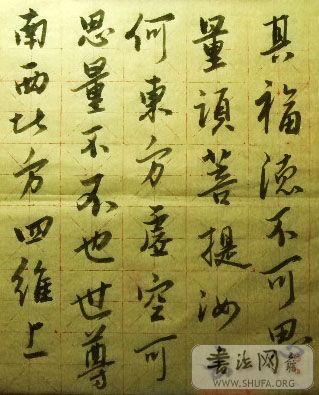 其福德不可思
量須菩提汝
何東方虛空可
思量不不也世尊
南西北方四維上
書法网
WWW.SHUFA.ORG